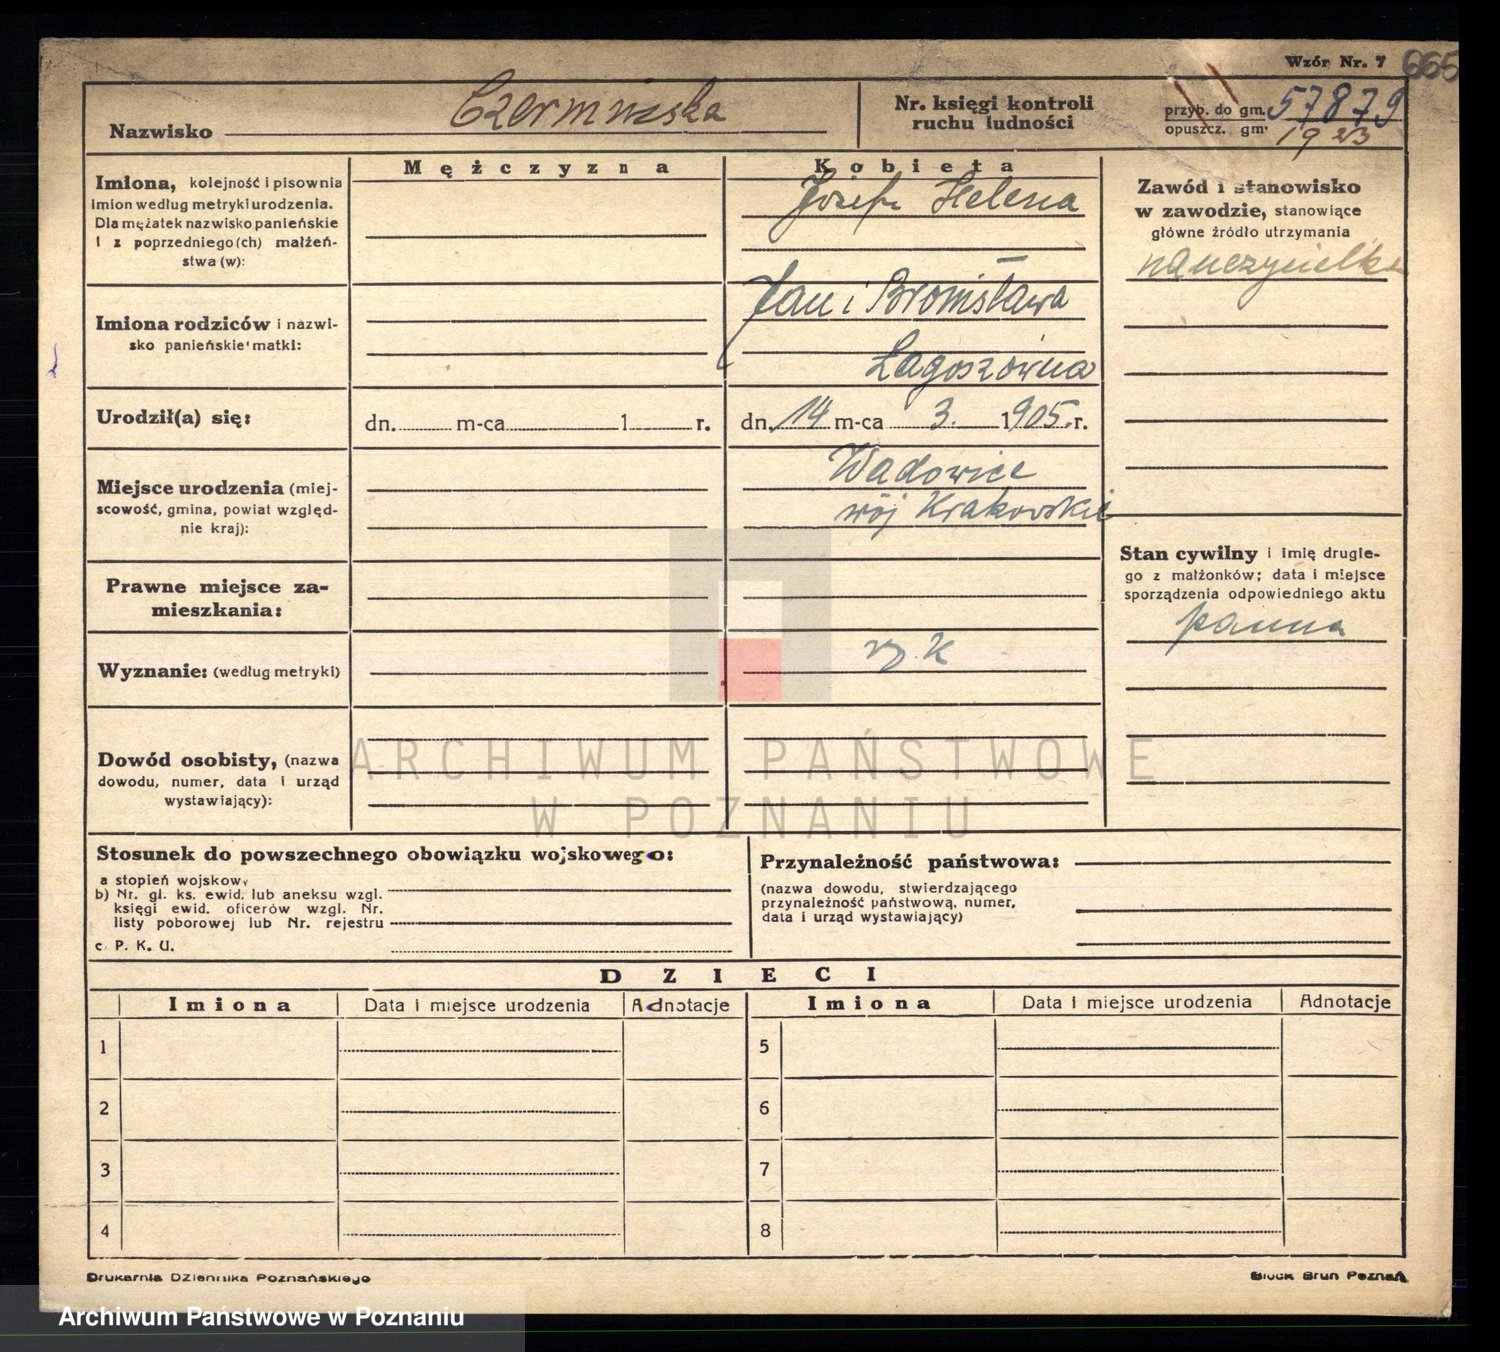 Wzór Nr. 7
Nazwisko Czermińska
Nr. księgi kontroli
ruchu ludności
przyb. do gm. 57879
opuszcz. gm. 19 23
Mężczyzna
Kobieta
Imiona, kolejność i pisownia
imion według metryki urodzenia.
Dla mężatek nazwisko panieńskie
i z poprzedniego(ch) małżeń-
stwa (w):
Józefa Helena
Zawód i stanowisko
w zawodzie, stanowiące
główne źródło utrzymania
nauczycielka
Imiona rodziców i nazwi-
sko panieńskie matki:
Jan i Bronisława
Łagoszówna
Urodził(a) się:
dn. m-ca 1 r.
dn. 14 m-ca 3. 1905 r.
Miejsce urodzenia (miej-
scowość, gmina, powiat względ-
nie kraj):
Wadowice
wój Krakowskie
Stan cywilny i imię drugie-
go z małżonków; data i miejsce
sporządzenia odpowiedniego aktu
panna
Prawne miejsce za-
mieszkania:
Wyznanie: (według metryki)
rz. K
Dowód osobisty, (nazwa
dowodu, numer, data i urząd
wystawiający):
ARCHIWUM PAŃSTWOWE
W POZNANIU
Stosunek do powszechnego obowiązku wojskowego:
a stopień wojskowy
b) Nr. gł. ks. ewid. lub aneksu wzgl.
księgi ewid. oficerów wzgl. Nr.
listy poborowej lub Nr. rejestru
c. P. K. U.
Przynależność państwowa:
(nazwa dowodu, stwierdzającego
przynależność państwową, numer,
data i urząd wystawiający)
DZIECI
Imiona Data i miejsce urodzenia Adnotacje Imiona Data i miejsce urodzenia Adnotacje
1 5
2 6
3 7
4 8
Drukarnia Dziennika Poznańskiego
Block Brun Poznań
Archiwum Państwowe w Poznaniu